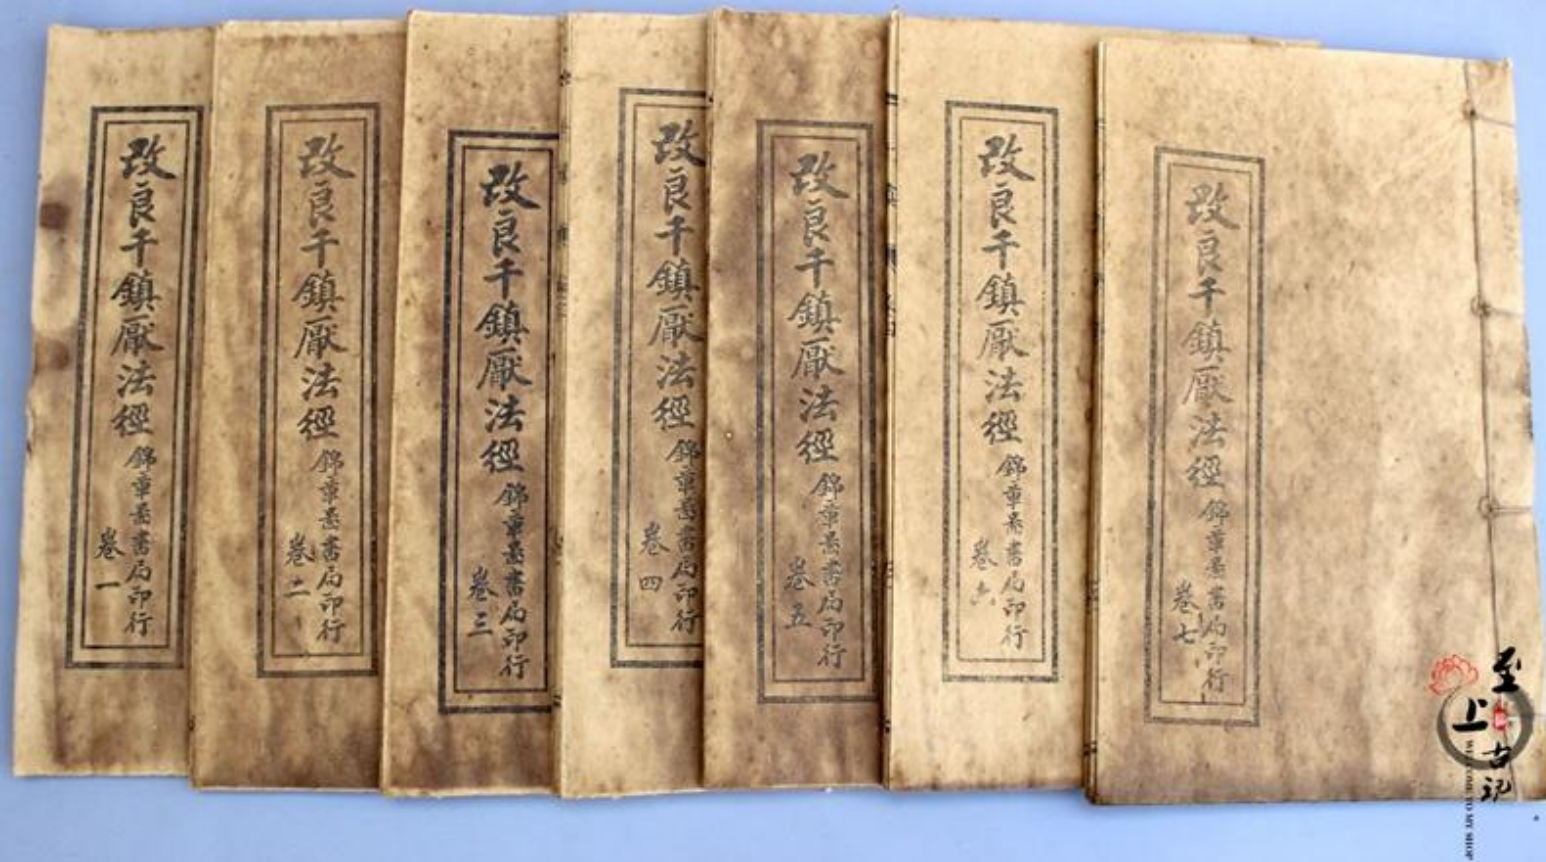 改良千鎮厭法經
錦章圖書局印行
卷一
改良千鎮厭法經
錦章圖書局印行
卷二
改良千鎮厭法經
錦章圖書局印行
卷三
改良千鎮厭法經
錦章圖書局印行
卷四
改良千鎮厭法經
錦章圖書局印行
卷五
改良千鎮厭法經
錦章圖書局印行
卷六
改良千鎮厭法經
錦章圖書局印行
卷七
至上古記
WELCOME TO MY SHOP